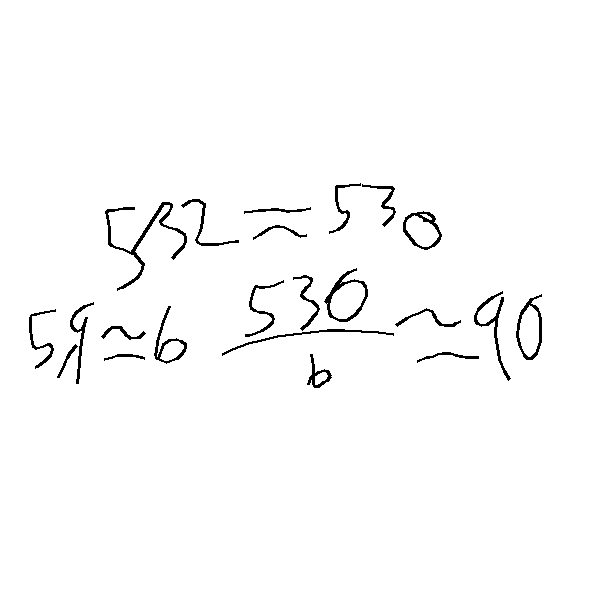 532 ≈ 530
5,9 ≈ 6 530/6 ≈ 90